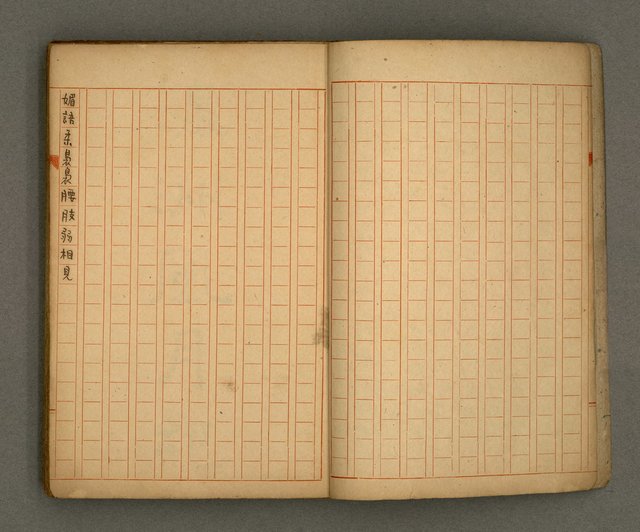 媚語柔裊裊腰肢弱相見